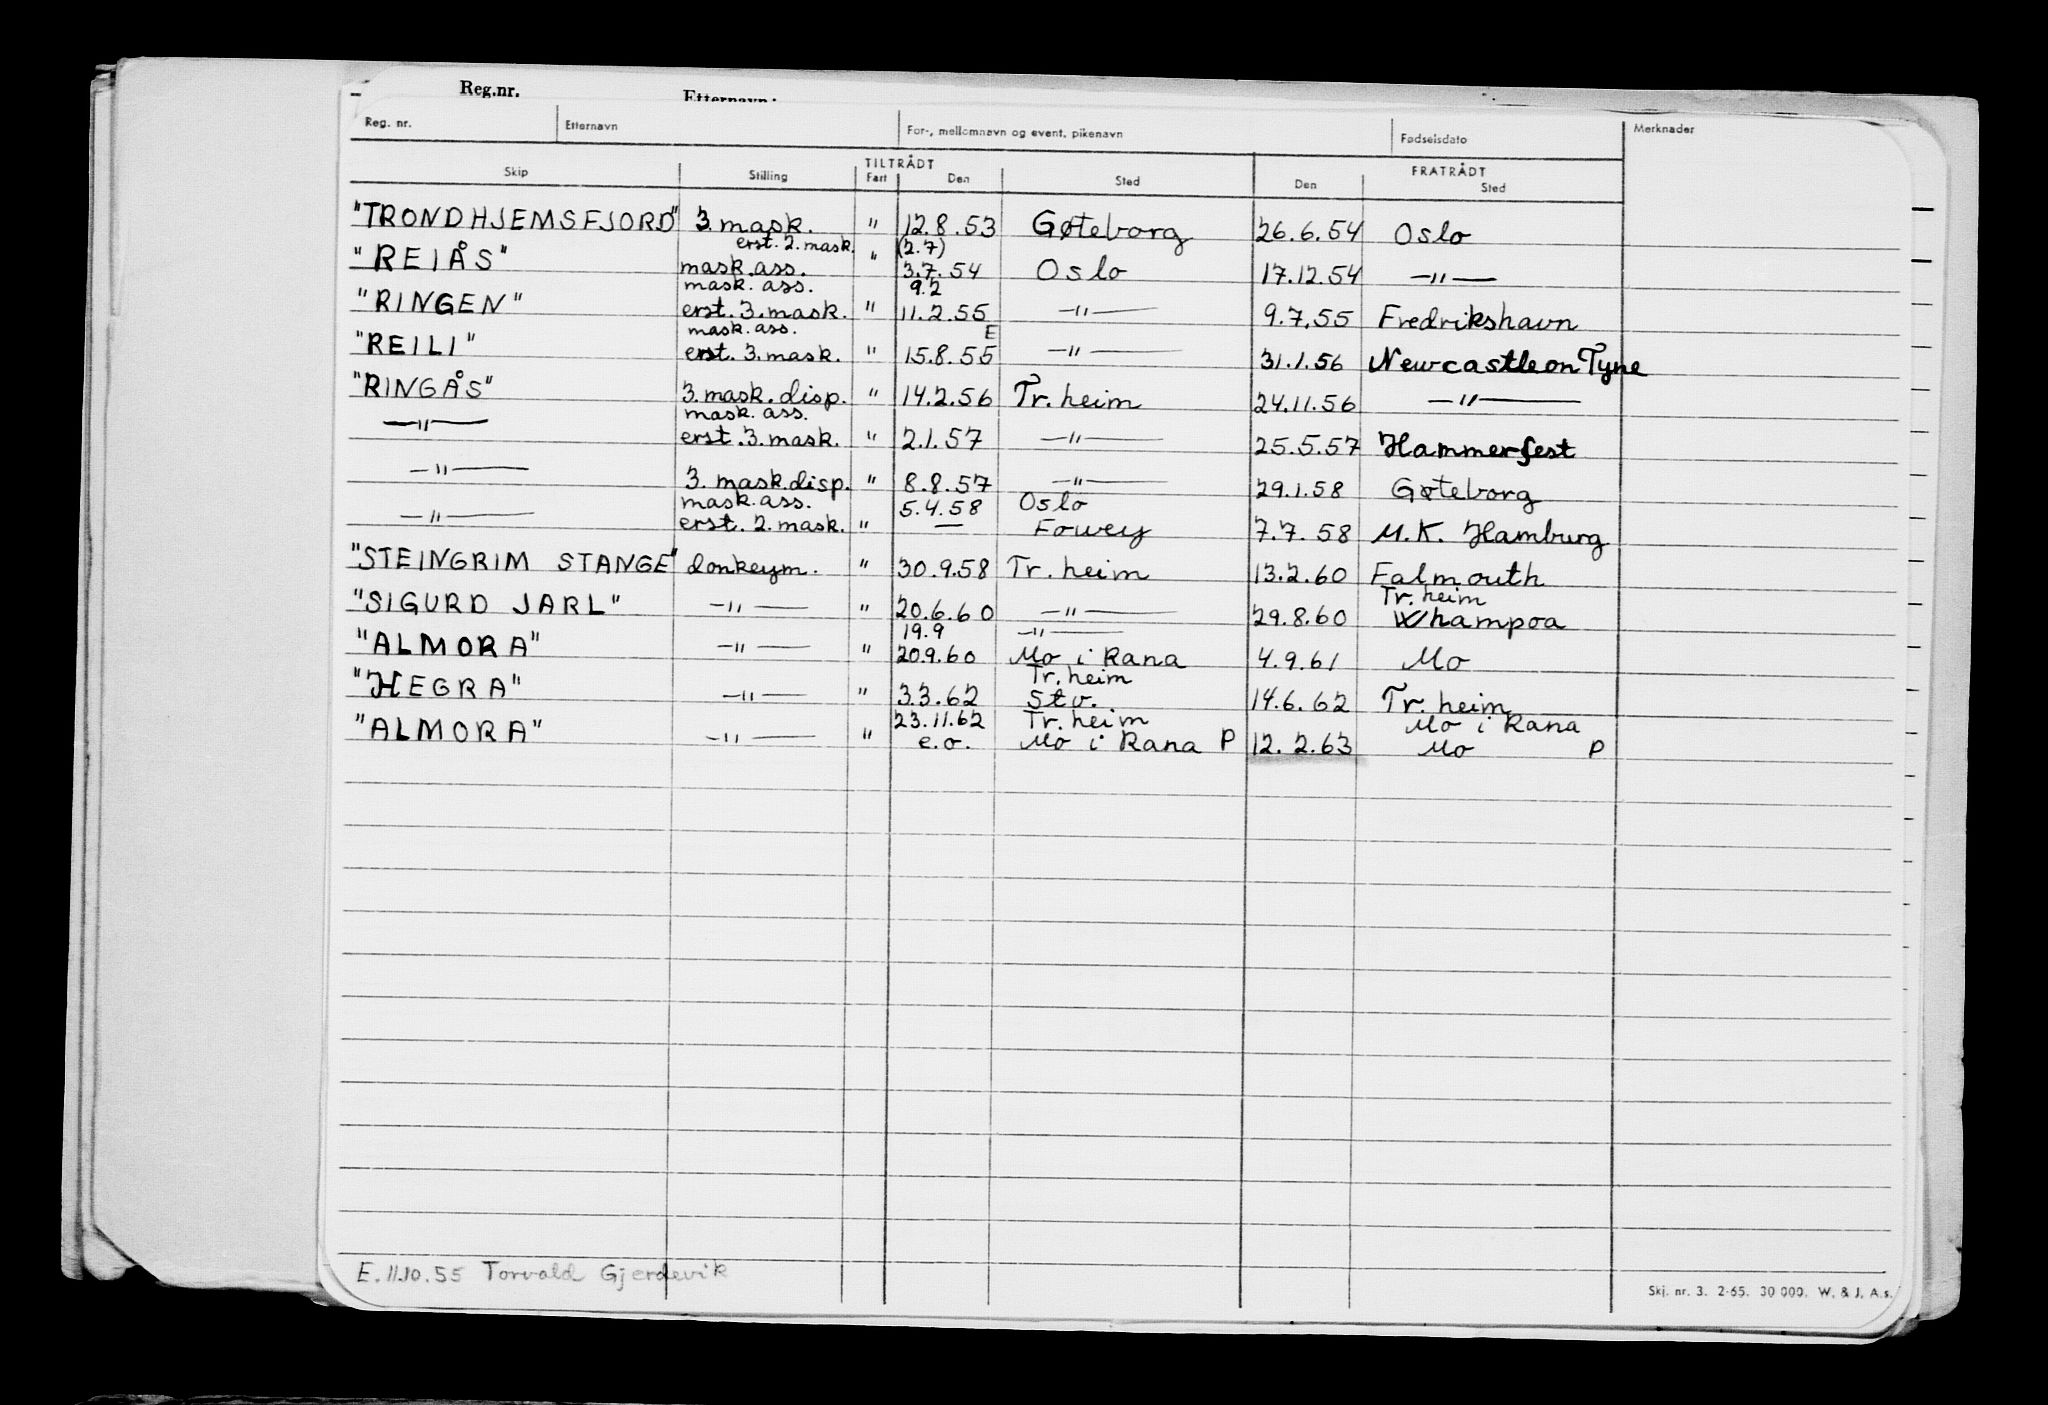 Reg.nr. Etternavn:
Reg. nr. Etternavn For-, mellomnavn og event. pikenavn Fødselsdato Merknader
TILTRÅDT FRATRÅDT
Skip Stilling Fart Den Sted Den Sted
"TRONDHJEMSFJORD" 3. mask. " 12.8.53 Gøteborg 26.6.54 Oslo
erst. 2. mask. (2.7)
"REIÅS" mask. ass. " 3.7.54 Oslo 17.12.54 —"—
mask. ass. 9.2
"RINGEN" erst. 3. mask. " 11.2.55 —"— 9.7.55 Fredrikshavn
mask. ass. E
"REILI" erst. 3. mask. " 15.8.55 —"— 31.1.56 Newcastle on Tyne
"RINGÅS" 3. mask. disp. " 14.2.56 Tr. heim 24.11.56 —"—
mask. ass.
—"— erst. 3. mask. " 2.1.57 —"— 25.5.57 Hammerfest
—"— 3. mask. disp. " 8.8.57 —"— 29.1.58 Gøteborg
mask. ass. 5.4.58 Oslo
—"— erst. 2. mask. " — Fowey 7.7.58 M.K. Hamburg
"STEINGRIM STANGE" donkeym. " 30.9.58 Tr. heim 13.2.60 Falmouth
Tr. heim
"SIGURD JARL" —"— " 20.6.60 —"— 29.8.60 Whampoa
19.9 —"—
"ALMORA" —"— " 20.9.60 Mo i Rana 4.9.61 Mo
Tr. heim
"HEGRA" —"— " 3.3.62 Stv. 14.6.62 Tr. heim
23.11.62 Tr. heim Mo i Rana
"ALMORA" —"— " e.o. Mo i Rana P 12.2.63 Mo P
E. 11.10.55 Torvald Gjerdevik
Skj. nr. 3. 2-65. 30 000. W. & J. A.s.